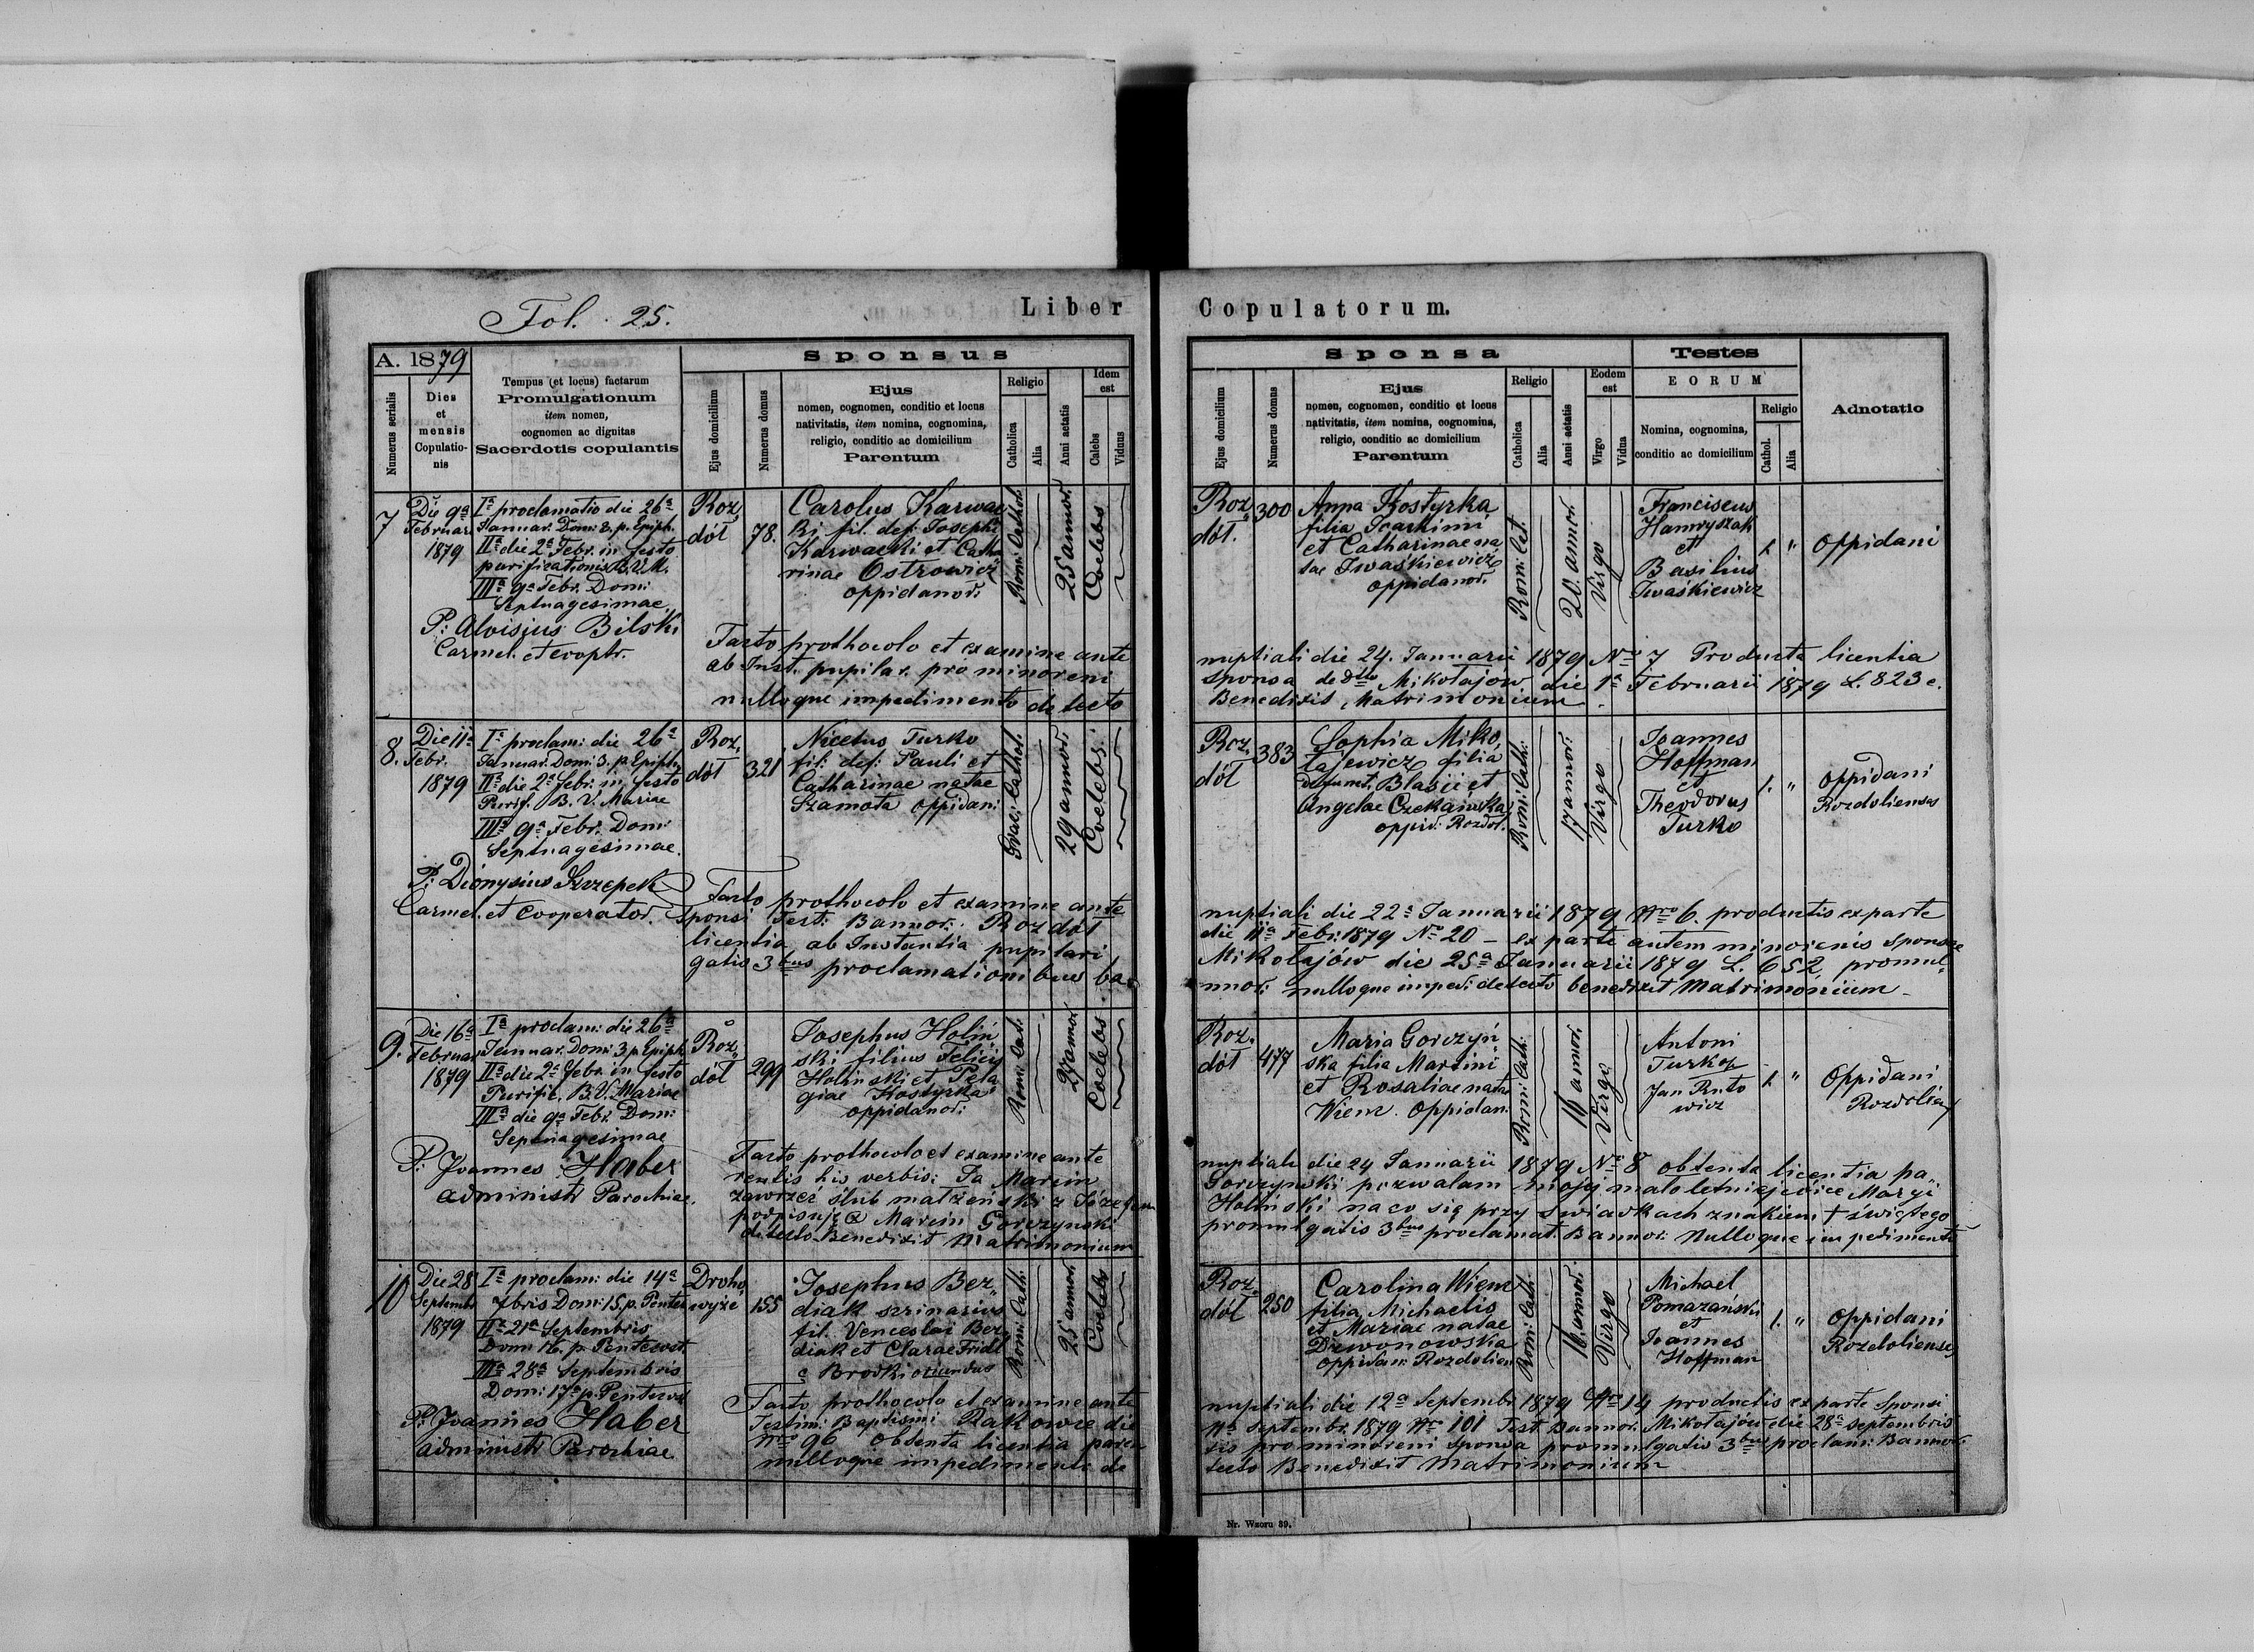 Fol. 25.
Liber Copulatorum.
A. 1879
Numerus serialis
Dies
et
mensis
Copulatio-
nis
Tempus (et locus) factarum
Promulgationum
item nomen,
cognomen ac dignitas
Sacerdotis copulantis
Sponsus
Ejus domicilium
Numerus domus
Ejus
nomen, cognomen, conditio et locus
nativitatis, item nomina, cognomina,
religio, conditio ac domicilium
Parentum
Religio
Catholica
Alia
Anni aetatis
Idem
est
Calebs
Viduus
Sponsa
Ejus domicilium
Numerus domus
Ejus
nomen, cognomen, conditio et locus
nativitatis, item nomina, cognomina,
religio, conditio ac domicilium
Parentum
Religio
Catholica
Alia
Anni aetatis
Eodem
est
Virgo
Vidua
Testes
EORUM
Nomina, cognomina,
conditio ac domicilium
Religio
Cathol.
Alia
Adnotatio
7
Die 9a
Februar
1879
Ia proclamatio die 26a
Januar. Dom: 3. p. Epiph.
IIa die 2a Febr. in festo
purificationis B.V.M.
IIIa 9a Febr. Dom:
Septuagesimae.
P: Aloisius Bilski
Carmel. et cooptr.
Roz
dół
78.
Carolus Karwac
ki fil. def: Josephi
Karwacki et Catha
rinae Ostrowicz
oppidanor:
Rom: Cathol.
25 annor.
Coelebs
Roz
dół.
300
Anna Kostyrka
filia Joachimi
et Catharinae na
tae Iwaśkiewicz
oppidanor.
Rom: Cat.
20. annor.
Virgo
Franciscus
Hamryszak
et
Basilius
Iwaśkiewicz
1. "
Oppidani
Facto prothocolo et examine ante nuptiali die 24. Januarii 1879 No 7 Producta licentia
ab Inst. pupilar. pro minoreni sponsa de dtto Mikołajów die 1a Februarii 1879 L. 823 c.
nulloque impedimento detecto Benedixit Matrimonium.
8.
Die 11a
Febr.
1879
Ia proclam: die 26a
Januar. Dom: 3. p. Epiph
IIa die 2a Febr. in festo
Purif. B. V. Mariae
IIIa 9a Febr. Dom:
Septuagesimae.
P: Dionysius Szczepek
Carmel. et Cooperator.
Roz
dół
321
Nicetus Turko
fil: def: Pauli et
Catharinae natae
Szamota oppidani
Graec: Cathol.
29 annor.
Coelebs.
Roz.
dół
383
Sophia Miko
łajewicz filia
defunct. Blasii et
Angelae Czekańska
oppid: Rozdoł.
Rom: Cath:
17 annor:
Virgo
Joannes
Hoffman
et
Theodorus
Turko
1. "
Oppidani
Rozdolienses
Facto prothocolo et examine ante nuptiali die 22a Januarii 1879 Nro 6. productis ex parte
Sponsi Test: Bannor: Rozdół die 11a Febr: 1879 No 20 – ex parte autem minorenis sponsae
licentia ab Instantia pupilari Mikołajów die 25a Januarii 1879 L. 652, promul
gatis 3bus proclamationibus ba nnor: nulloque imped: detecto benedixit Matrimonium –
9.
Die 16a
Februar
1879
Ia proclam: die 26a
Januar. Dom: 3 p. Epiph
IIa die 2a Febr. in festo
Purific. B.V. Mariae
IIIa die 9a Febr. Dom:
Septuagesimae
P: Joannes Haber
administr Parochiae.
Roz
dół
299
Josephus Holiń
ski filius Felicis
Holinski et Pela
giae Kostyrka
oppidanor:
Rom: Cath.
27 annor
Coelebs.
Roz.
dół
477
Maria Gorczyń
ska filia Martini
et Rosaliae natae
Wiem. Oppidan.
Rom: Cath:
16 annor.
Virgo
Antoni
Turko
Jan Ruto
wicz
1. "
Oppidani
Facto prothocolo et examine ante nuptiale die 24 Januarii 1879 No 8 obtenta licentia pa
rentis his verbis: Ja Marcin Gorczynski pozwalam mojej małoletniej córce Maryi
zawrzeć ślub małżeński z Józefem Holiński na co się przy swiadkach znakiem + świętego
podpisuję Marcin Gorczynski promulgatis 3bus proclamat. Bannor: Nulloque impedimento
detecto Benedixit Matrimonium
10
Die 28
Septembr
1879
Ia proclam: die 14a
7bris Dom: 15. p. Pentec
IIa 21a Septembris
Dom: 16. p. Pentecost
IIIa 28a Septembris
Dom: 17a p. Pentecost
P: Joannes Haber
administr Parochiae
Droho
wyże
155
Josephus Bez
diak
fil. Venceslai Bez
diak et Clarae Fridl
e Brodki oriundus
Rom: Cath.
25 annor.
Coelebs
Roz
dół
250
Carolina Wiem
filia Michaelis
et Mariae natae
Dzwonowska
oppidan: Rozdolien
Rom: Cath.
16. annor.
Virgo
Michael
Pomazański
et
Joannes
Hoffman
1. "
Oppidani
Rozdolienses
Facto prothocolo et examine ante nuptiali die 12a Septembr 1879 Nro 14 productis ex parte Sponsi
Testim: Baptismi Rakowce die Septembr. 1879 Nro 101 Test Bannor. Mikołajów die 28a Septembris
Nro 96 obtenta licentia paren tis pro minoreni sponsa promulgatis 3bus proclam: Bannor:
nulloque impedimento de tecto Benedixit Matrimonium
Nr. Wzoru 39.